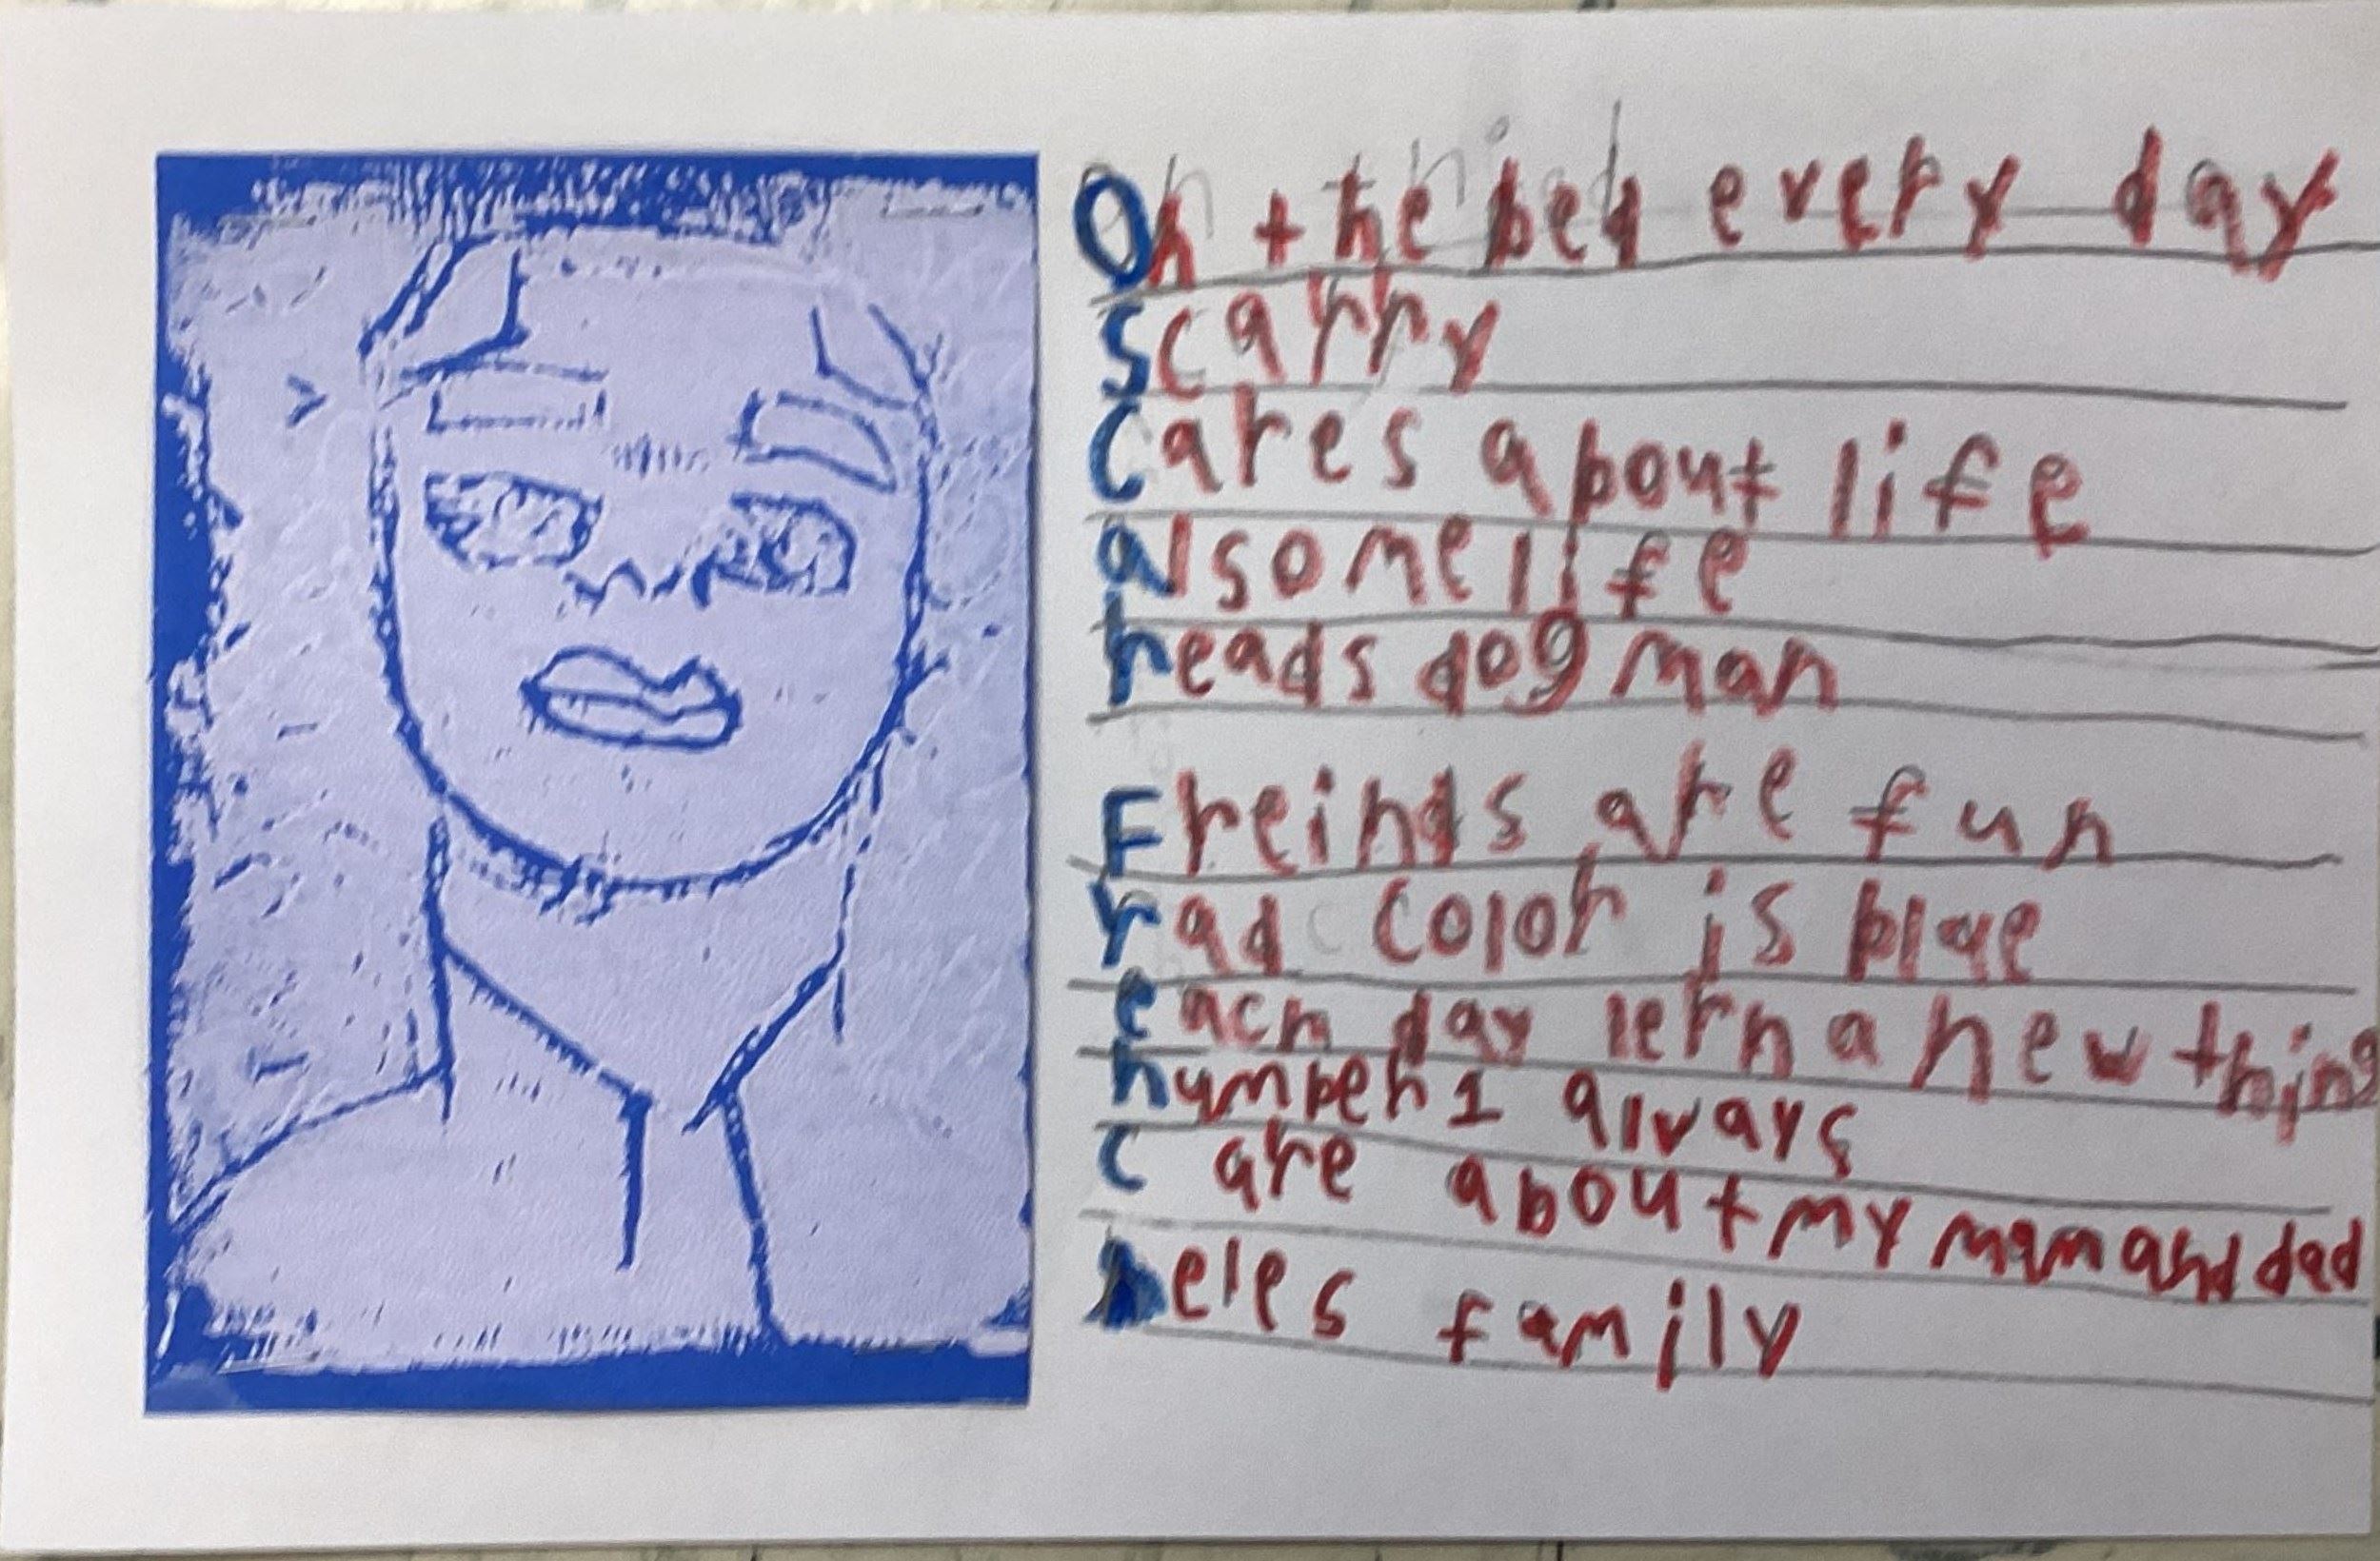 On the bed every day
scarry
cares about life
alsome life
reads dog man
Freinds are fun
rad color is blae
each day lern a new thing
number 1 alvays
care about my mam and dad
helps family